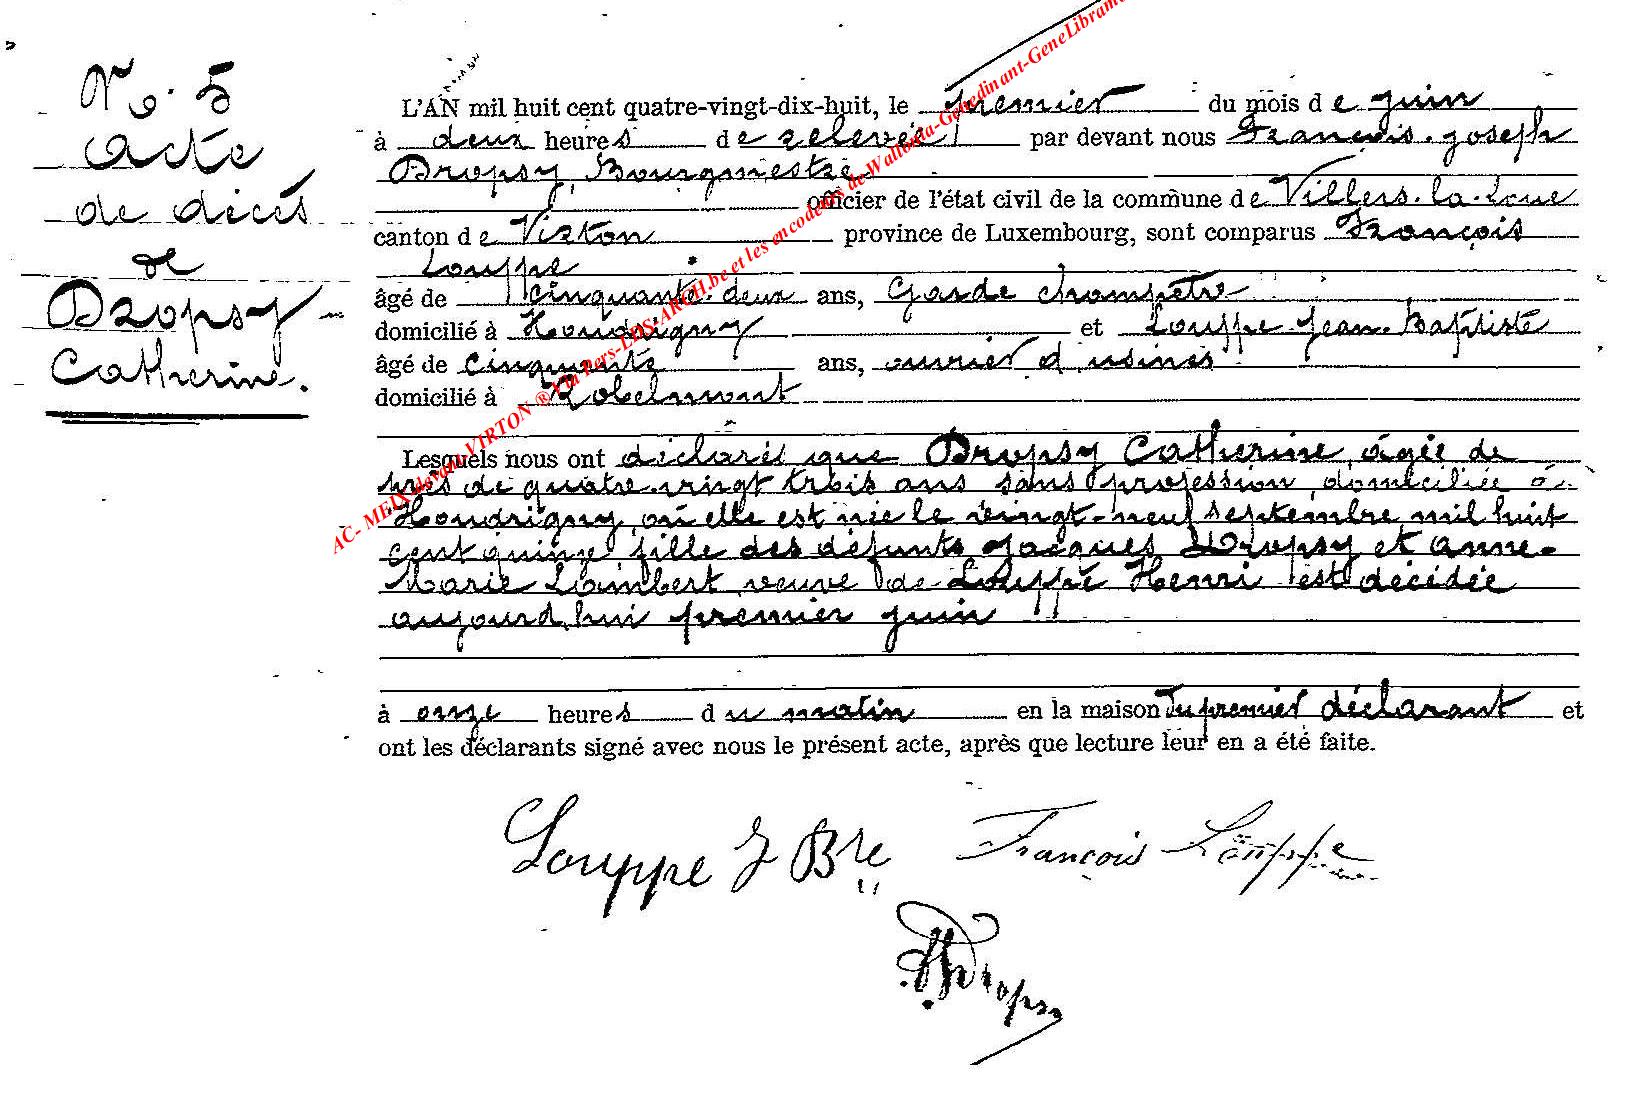 No. 5
Acte
de décès
de
Dropsy
Catherine.
L'AN mil huit cent quatre-vingt-dix-huit, le Premier du mois de juin
à deux heures de relevée par devant nous François-Joseph
Dropsy, Bourgmestre
officier de l'état civil de la commune de Villers-la-Loue
canton de Virton province de Luxembourg, sont comparus François
Louppe
âgé de cinquante-deux ans, Garde champêtre
domicilié à Houdrigny et Louppe Jean-Baptiste
âgé de cinquante ans, ouvrier d'usines
domicilié à Robelmont
Lesquels nous ont déclaré que Dropsy Catherine, âgée de
près de quatre-vingt trois ans sans profession, domiciliée à
Houdrigny, où elle est née le vingt-neuf septembre mil huit
cent quinze, fille des défunts Jacques Dropsy et Anne-
Marie Lambert veuve de Louppe Henri est décédée
aujourd'hui premier juin
à onze heures du matin en la maison du premier déclarant et
ont les déclarants signé avec nous le présent acte, après que lecture leur en a été faite.
Louppe J Bte François Louppe
Dropsy
AC- MEIX devant VIRTON ® Via Pers-LDS-ARCH.be et les encodeurs de Wallonia-Genedinant-GeneLibrami